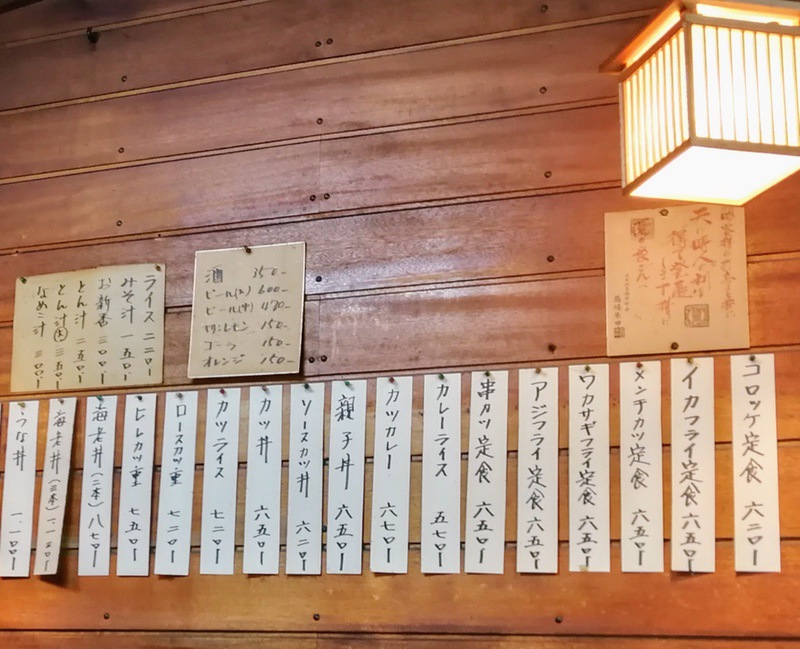 コロッケ定食 六二〇ー
イカフライ定食 六五〇ー
メンチカツ定食 六五〇ー
ワカサギフライ定食 六五〇ー
アジフライ定食 六五〇ー
串カツ定食 六五〇ー
カレーライス 五七〇ー
カツカレー 六七〇ー
親子丼 六五〇ー
ソースカツ丼 六二〇ー
カツ丼 六五〇ー
カツライス 七二〇ー
ロースカツ重 七二〇ー
ヒレカツ重 七五〇ー
海老丼(二本) 八七〇ー
海老丼(三本)
うな丼 一、一〇〇ー
酒 350-
ビール(大) 600-
ビール(中) 470-
150-
コーラ 150-
オレンジ 150-
ライス 二二〇ー
みそ汁 一五〇ー
お新香 三〇〇ー
とん汁 二五〇ー
とん汁(大) 三五〇ー
なめこ汁 三〇〇ー